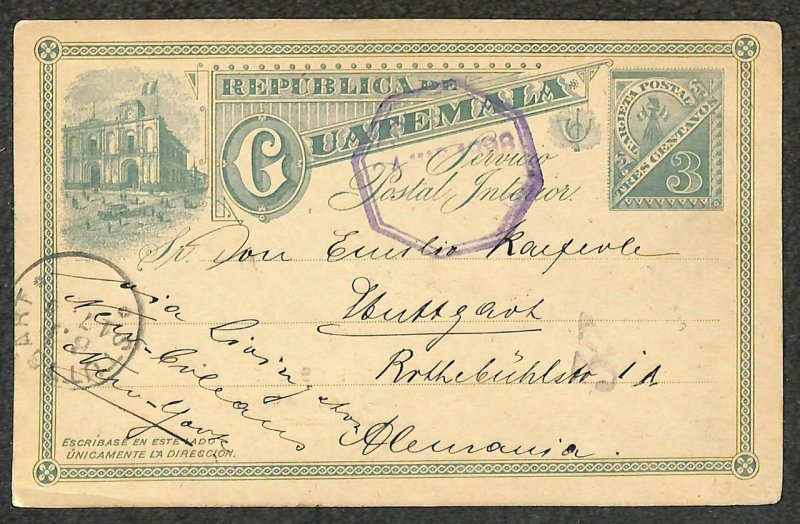 REPÚBLICA DE
GUATEMALA
Servicio
Postal Interior.
TARJETA POSTAL
TRES CENTAVOS
3
Sr. Don Emilio
Stuttgart
Alemania.
via Livingston
New-Orleans
New-York
ESCRÍBASE EN ESTE LADO
ÚNICAMENTE LA DIRECCIÓN.